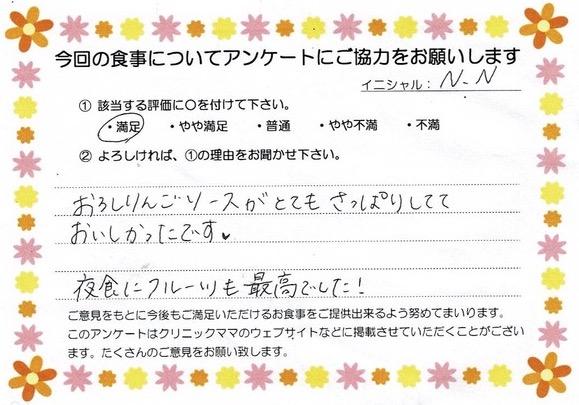 今回の食事についてアンケートにご協力をお願いします
イニシャル： N.N
① 該当する評価に〇を付けて下さい。
・満足 ・やや満足 ・普通 ・やや不満 ・不満
② よろしければ、①の理由をお聞かせ下さい。
おろしりんごソースがとてもさっぱりしてて
おいしかったです♥
夜食にフルーツも最高でした！
ご意見をもとに今後もご満足いただけるお食事をご提供出来るよう努めてまいります。
このアンケートはクリニックママのウェブサイトなどに掲載させていただくことがござい
ます。たくさんのご意見をお願い致します。